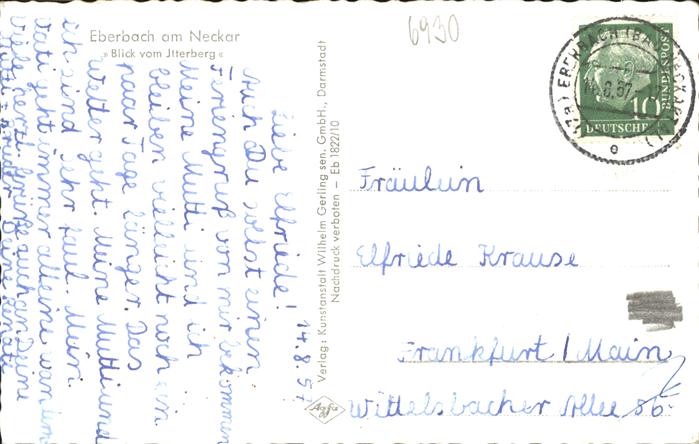 Eberbach am Neckar
» Blick vom Jtterberg «
6930
14.8.57.
Liebe Elfriede!
Auch Du sollst einen
Feriengruß von mir bekommen
Meine Mutti und ich
bleiben vielleicht noch ein
paar Tage länger. Das
Wetter geht. Meine Mutti und
ich sind sehr faul. Mein
Vati geht immer alleine wandern
Viele herzl. Grüße auch an Deine
Deine Renate
Verlag: Kunstanstalt Wilhelm Gerling sen. GmbH., Darmstadt
Nachdruck verboten – Eb 1822/10
Agfa
EBERBACH
8.57
e
10
DEUTSCHE
BUNDESPOST
Fräulein
Elfriede Krause
Frankfurt / Main
Wittelsbacher Allee 56.